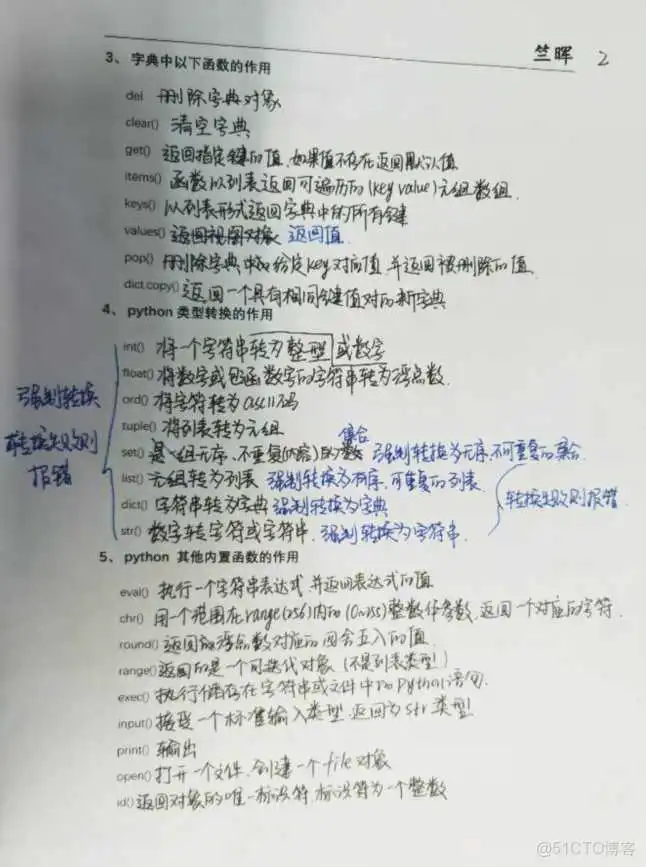 竺晖 2
3、 字典中以下函数的作用
del 删除字典对象
clear() 清空字典
get() 返回指定键的值,如果值不存在返回默认值
items() 函数以列表返回可遍历的(key value)元组数组.
keys() 以列表形式返回字典中的所有键
values() 返回视图对象 返回值.
pop() 删除字典中给定key对应值,并返回被删除的值.
dict.copy() 返回一个具有相同键值对的新字典
4、 python 类型转换的作用
int() 将一个字符串转为整型 或数字
float() 将数字或包函数字的字符串转为浮点数.
ord() 将字符转为ascii码
tuple() 将列表转为元组
强制转换
转换失败则
报错
集合
set() 是一组无序、不重复(内容)的 强制转换为无序,不可重复的集合.
list() 元组转为列表 强制转换为有序,可重复的列表.
dict() 字符串转为字典 强制转换为字典
str() 数字转字符或字符串. 强制转换为字符串.
转换失败则报错
5、 python 其他内置函数的作用
eval() 执行一个字符串表达式,并返回表达式的值
chr() 用一个范围在range(256)内的(0~255)整数作参数,返回一个对应的字符.
round() 返回浮点数对应的四舍五入的值.
range() 返回的是一个可迭代对象 (不是列表类型!)
exec() 执行储存在字符串或文件中的Python语句.
input() 接受一个标准输入类型,返回为str类型
print() 输出
open() 打开一个文件,创建一个file对象
id() 返回对象的唯一标识符,标识符为一个整数
@51CTO博客